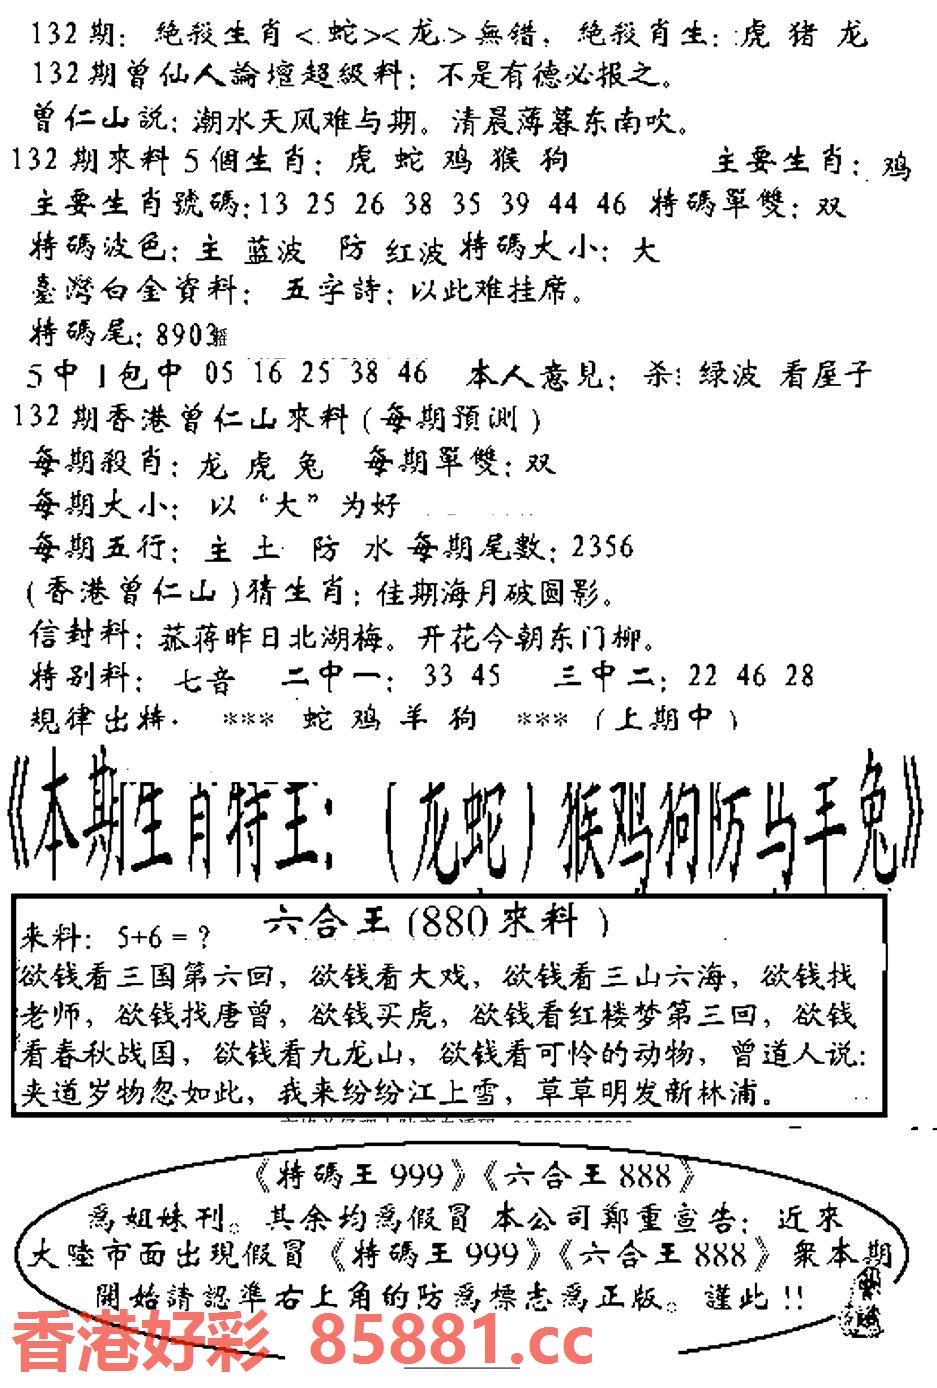 132期：絶殺生肖<蛇><龙>無錯，絶殺肖生：虎 猪 龙
132期曾仙人論壇超級料：不是有德必报之。
曾仁山説：潮水天风难与期。清晨薄暮东南吹。
132期來料5個生肖：虎 蛇 鸡 猴 狗 主要生肖：鸡
主要生肖號碼：13 25 26 38 35 39 44 46 特碼單雙：双
特碼波色：主 蓝波 防 红波 特碼大小：大
臺灣白金資料：五字詩：以此难挂席。
特碼尾：8903
5中1包中 05 16 25 38 46 本人意見：杀：绿波 看屋子
132期香港曾仁山來料(每期預測)
每期殺肖：龙 虎 兔 每期單雙：双
每期大小：以“大”为好
每期五行：主 土 防 水 每期尾數：2356
(香港曾仁山)猜生肖：佳期海月破圆影。
信封料：菰蒋昨日北湖梅。开花今朝东门柳。
特别料：七音 二中一：33 45 三中二：22 46 28
規律出特· *** 蛇 鸡 羊 狗 *** (上期中)
《本期生肖特王：(龙蛇)猴鸡狗防马羊兔》
六合王(880來料)
来料：5+6=？
欲钱看三国第六回，欲钱看大戏，欲钱看三山六海，欲钱找
老师，欲钱找唐曾，欲钱买虎，欲钱看红楼梦第三回，欲钱
看春秋战国，欲钱看九龙山，欲钱看可怜的动物，曾道人说：
夹道岁物忽如此，我来纷纷江上雪，草草明发新林浦。
《特碼王999》《六合王888》
爲姐妹刊。其余均爲假冒 本公司鄭重宣告：近來
大陸市面出現假冒《特碼王999》《六合王888》衆本期
開始請認準右上角的防爲標志爲正版。謹此!!
香港好彩 85881.cc